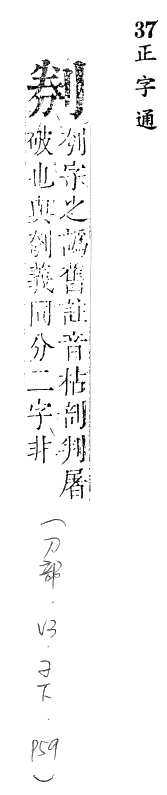 37正字通
刳字之譌舊註音枯剖判屠
破也與刳義同分二字非
(刀部.V3.子下.P59)